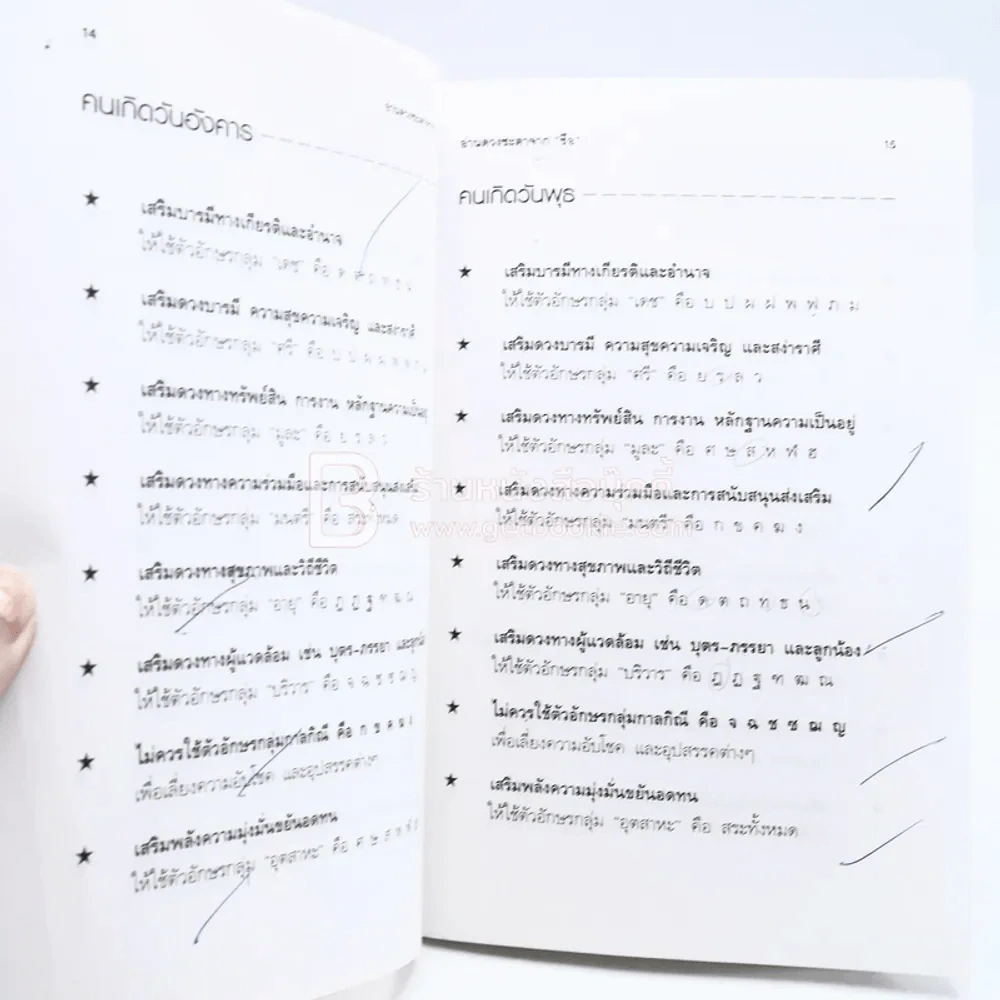 14
คนเกิดวันอังคาร
★ เสริมบารมีทางเกียรติและอำนาจ
ให้ใช้ตัวอักษรกลุ่ม "เดช" คือ ด ต ถ ท ธ น
★ เสริมดวงบารมี ความสุขความเจริญ และสง่าราศี
ให้ใช้ตัวอักษรกลุ่ม "ศรี" คือ บ ป ผ ฝ พ ฟ ภ
★ เสริมดวงทางทรัพย์สิน การงาน หลักฐานความเป็นอยู่
ให้ใช้ตัวอักษรกลุ่ม "มูละ" คือ ย ร ล ว
★ เสริมดวงทางความร่วมมือและการสนับสนุนส่งเสริม
ให้ใช้ตัวอักษรกลุ่ม "มนตรี" คือ สระทั้งหมด
★ เสริมดวงทางสุขภาพและวิถีชีวิต
ให้ใช้ตัวอักษรกลุ่ม "อายุ" คือ ฎ ฏ ฐ ฑ ฒ ณ
★ เสริมดวงทางผู้แวดล้อม เช่น บุตร-ภรรยา และลูกน้อง
ให้ใช้ตัวอักษรกลุ่ม "บริวาร" คือ จ ฉ ช ซ ฌ ญ
★ ไม่ควรใช้ตัวอักษรกลุ่มกาลกิณี คือ ก ข ค ฆ ง
เพื่อเลี่ยงความอับโชค และอุปสรรคต่างๆ
★ เสริมพลังความมุ่งมั่นขยันอดทน
ให้ใช้ตัวอักษรกลุ่ม "อุตสาหะ" คือ ศ ษ ส ห ฬ ฮ
อ่านดวงชะตาจาก "ชื่อ" 15
คนเกิดวันพุธ
★ เสริมบารมีทางเกียรติและอำนาจ
ให้ใช้ตัวอักษรกลุ่ม "เดช" คือ บ ป ผ ฝ พ ฟ ภ ม
★ เสริมดวงบารมี ความสุขความเจริญ และสง่าราศี
ให้ใช้ตัวอักษรกลุ่ม "ศรี" คือ ย ร ล ว
★ เสริมดวงทางทรัพย์สิน การงาน หลักฐานความเป็นอยู่
ให้ใช้ตัวอักษรกลุ่ม "มูละ" คือ ศ ษ ส ห ฬ ฮ
★ เสริมดวงทางความร่วมมือและการสนับสนุนส่งเสริม
ให้ใช้ตัวอักษรกลุ่ม "มนตรี" คือ ก ข ค ฆ ง
★ เสริมดวงทางสุขภาพและวิถีชีวิต
ให้ใช้ตัวอักษรกลุ่ม "อายุ" คือ ด ต ถ ท ธ น
★ เสริมดวงทางผู้แวดล้อม เช่น บุตร-ภรรยา และลูกน้อง
ให้ใช้ตัวอักษรกลุ่ม "บริวาร" คือ ฎ ฏ ฐ ฑ ฒ ณ
★ ไม่ควรใช้ตัวอักษรกลุ่มกาลกิณี คือ จ ฉ ช ซ ฌ ญ
เพื่อเลี่ยงความอับโชค และอุปสรรคต่างๆ
★ เสริมพลังความมุ่งมั่นขยันอดทน
ให้ใช้ตัวอักษรกลุ่ม "อุตสาหะ" คือ สระทั้งหมด
B ร้านหนังสือบุ๊คกี้
www.getbookie.com